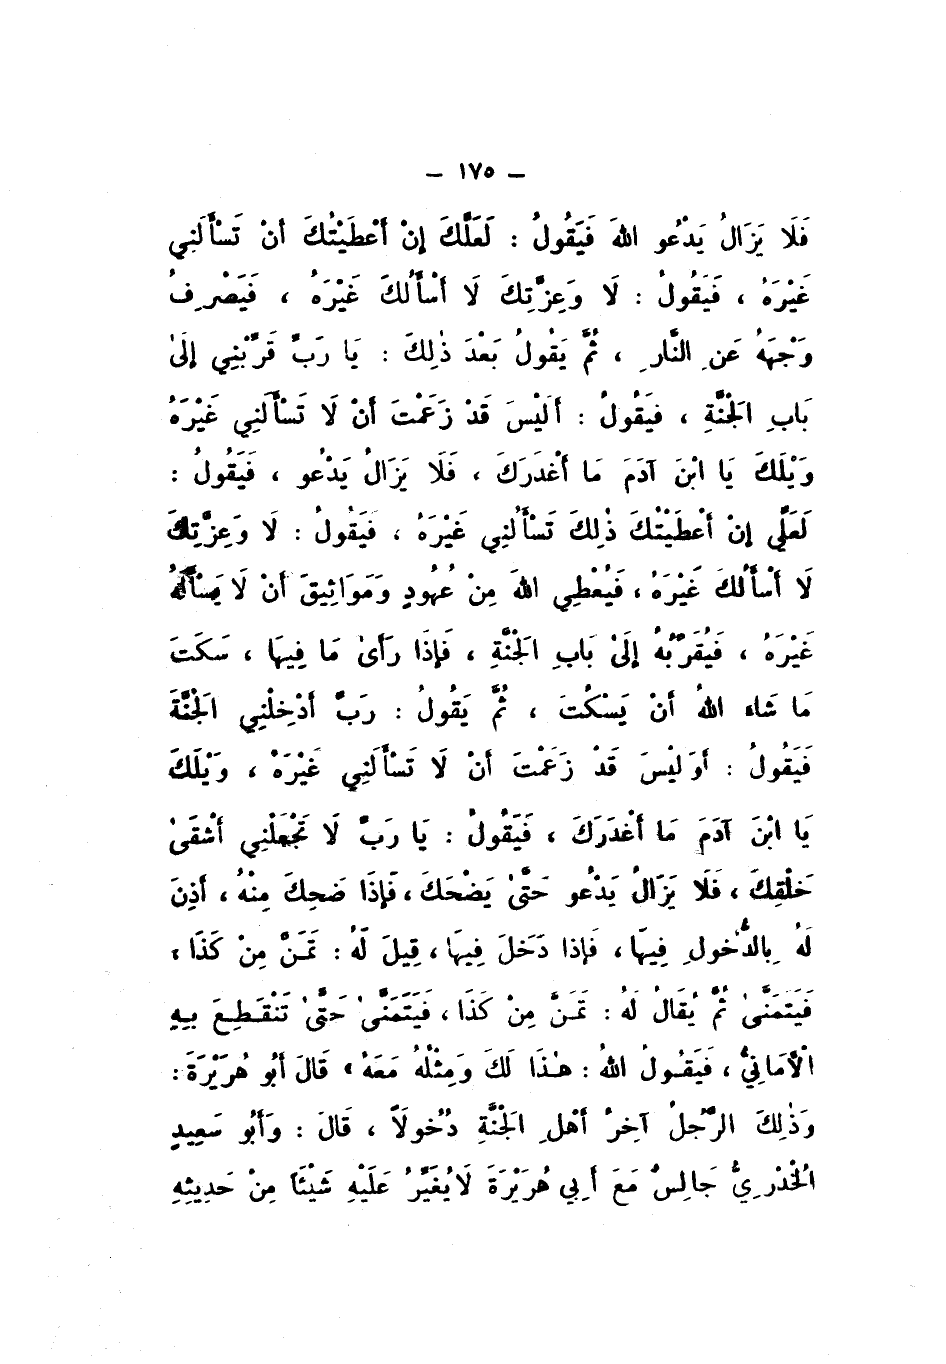 – ١٧٥ –
فَلَا يَزَالُ يَدْعُو اللهَ فَيَقُولُ : لَعَلَّكَ إِنْ أَعْطَيْتُكَ أَنْ تَسْأَلَنِي
غَيْرَهُ ، فَيَقُولُ : لَا وَعِزَّتِكَ لَا أَسْأَلُكَ غَيْرَهُ ، فَيَصْرِفُ
وَجْهَهُ عَنِ النَّارِ ، ثُمَّ يَقُولُ بَعْدَ ذٰلِكَ : يَا رَبِّ قَرِّبْنِي إِلَىٰ
بَابِ الجَنَّةِ ، فَيَقُولُ : أَلَيْسَ قَدْ زَعَمْتَ أَنْ لَا تَسْأَلَنِي غَيْرَهُ
وَيْلَكَ يَا ابْنَ آدَمَ مَا أَغْدَرَكَ ، فَلَا يَزَالُ يَدْعُو ، فَيَقُولُ :
لَعَلِّي إِنْ أَعْطَيْتُكَ ذٰلِكَ تَسْأَلُنِي غَيْرَهُ ، فَيَقُولُ : لَا وَعِزَّتِكَ
لَا أَسْأَلُكَ غَيْرَهُ ، فَيُعْطِي اللهَ مِنْ عُهُودٍ وَمَوَاثِيقَ أَنْ لَا يَسْأَلَهُ
غَيْرَهُ ، فَيُقَرِّبُهُ إِلَىْ بَابِ الجَنَّةِ ، فَإِذَا رَأَىٰ مَا فِيهَا ، سَكَتَ
مَا شَاءَ اللهُ أَنْ يَسْكُتَ ، ثُمَّ يَقُولُ : رَبِّ أَدْخِلْنِي الجَنَّةَ
فَيَقُولُ : أَوَلَيْسَ قَدْ زَعَمْتَ أَنْ لَا تَسْأَلَنِي غَيْرَهْ ، وَيْلَكَ
يَا ابْنَ آدَمَ مَا أَغْدَرَكَ ، فَيَقُولُ : يَا رَبِّ لَا تَجْعَلْنِي أَشْقَىٰ
خَلْقِكَ ، فَلَا يَزَالُ يَدْعُو حَتَّىٰ يَضْحَكَ ، فَإِذَا ضَحِكَ مِنْهُ ، أَذِنَ
لَهُ بِالدُّخُولِ فِيهَا ، فَإِذا دَخَلَ فِيهَا ، قِيلَ لَهُ : تَمَنَّ مِنْ كَذَا ،
فَيَتَمَنَّىٰ ثُمَّ يُقَالُ لَهُ : تَمَنَّ مِنْ كَذَا ، فَيَتَمَنَّىٰ حَتَّىٰ تَنْقَطِعَ بِهِ
الْأَمَانِيُّ ، فَيَقُولُ اللهُ : هٰذَا لَكَ وَمِثْلُهُ مَعَهُ » قَالَ أَبُو هُرَيْرَةَ :
وَذٰلِكَ الرَّجُلُ آخِرُ أَهْلِ الجَنَّةِ دُخُولَاً ، قَالَ : وَأَبُو سَعِيدٍ
الْخُدْرِيُّ جَالِسٌ مَعَ أَبِي هُرَيْرَةَ لَا يُغَيِّرُ عَلَيْهِ شَيْئَاً مِنْ حَدِيثِهِ